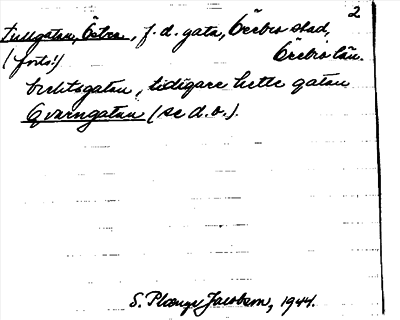 2
Tullgatan, Östra, f.d. gata, Örebro stad,
(forts.) Örebro län.
brektsgatan; tidigare hette gatan
Qvarngatan (se d.o.).
S. Plænge Jacobson, 1944.